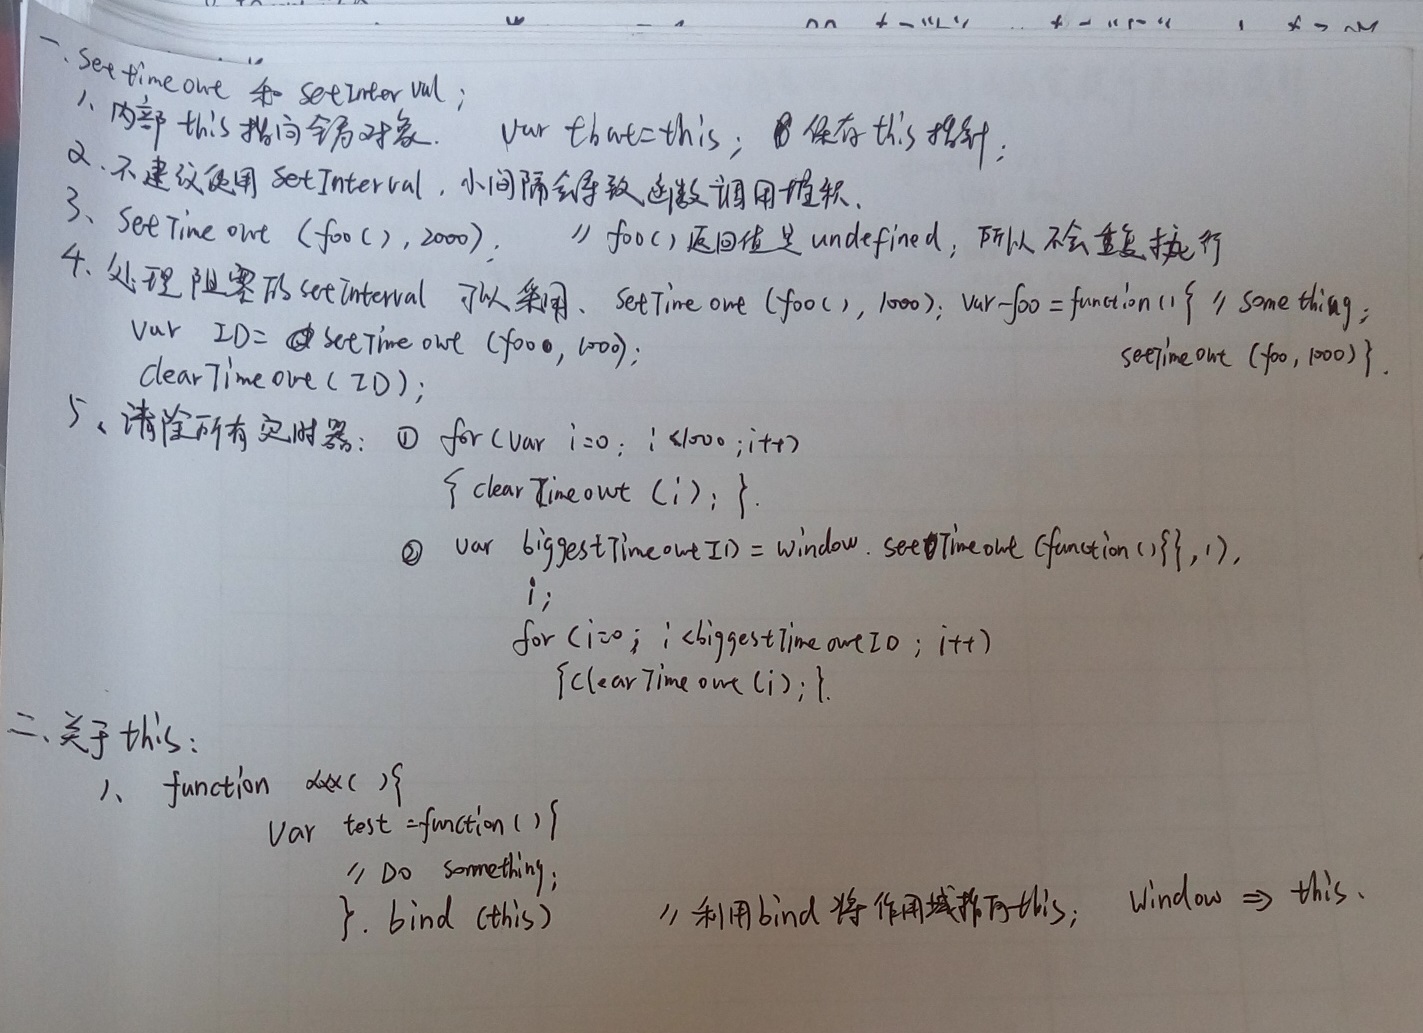 一. setTimeout 和 setInterval;
1、内部 this 指向全局对象. var that=this; 保存 this 指针;
2、不建议使用 setInterval, 小间隔会导致函数调用堆积.
3、setTimeout (foo(), 2000); // foo() 返回值是 undefined, 所以不会重复执行
4、处理阻塞的 setInterval 可以采用、setTimeout (foo(), 1000); var foo = function(){ // something;
var ID= setTimeout (foo, 1000); setTimeout (foo, 1000)}.
clearTimeout(ID);
5、清除所有定时器: ① for(var i=0; i<1000; i++)
{ clearTimeout (i); }.
② var biggestTimeoutID = window.setTimeout (function(){}, 1),
i;
for (i=0; i<biggestTimeoutID; i++)
{clearTimeout(i);}.
二、关于 this:
1、function ( ){
var test = function(){
// Do something;
}. bind (this) // 利用 bind 将作用域指向 this; window ⇒ this.